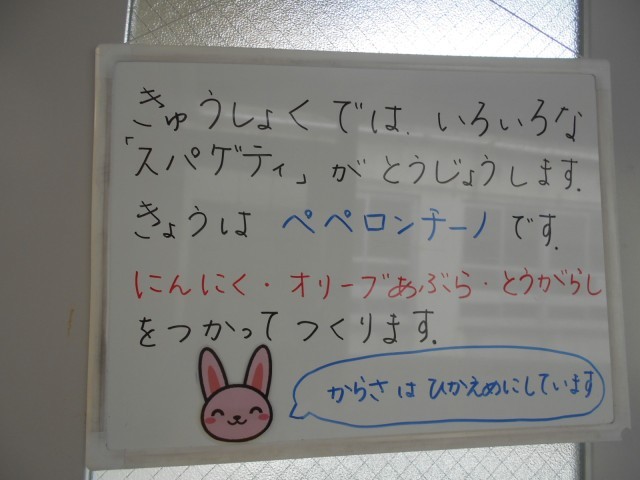 きゅうしょくでは、いろいろな
「スパゲティ」がとうじょうします。
きょうは ペペロンチーノ です。
にんにく・オリーブあぶら・とうがらし
をつかってつくります。
からさはひかえめにしています